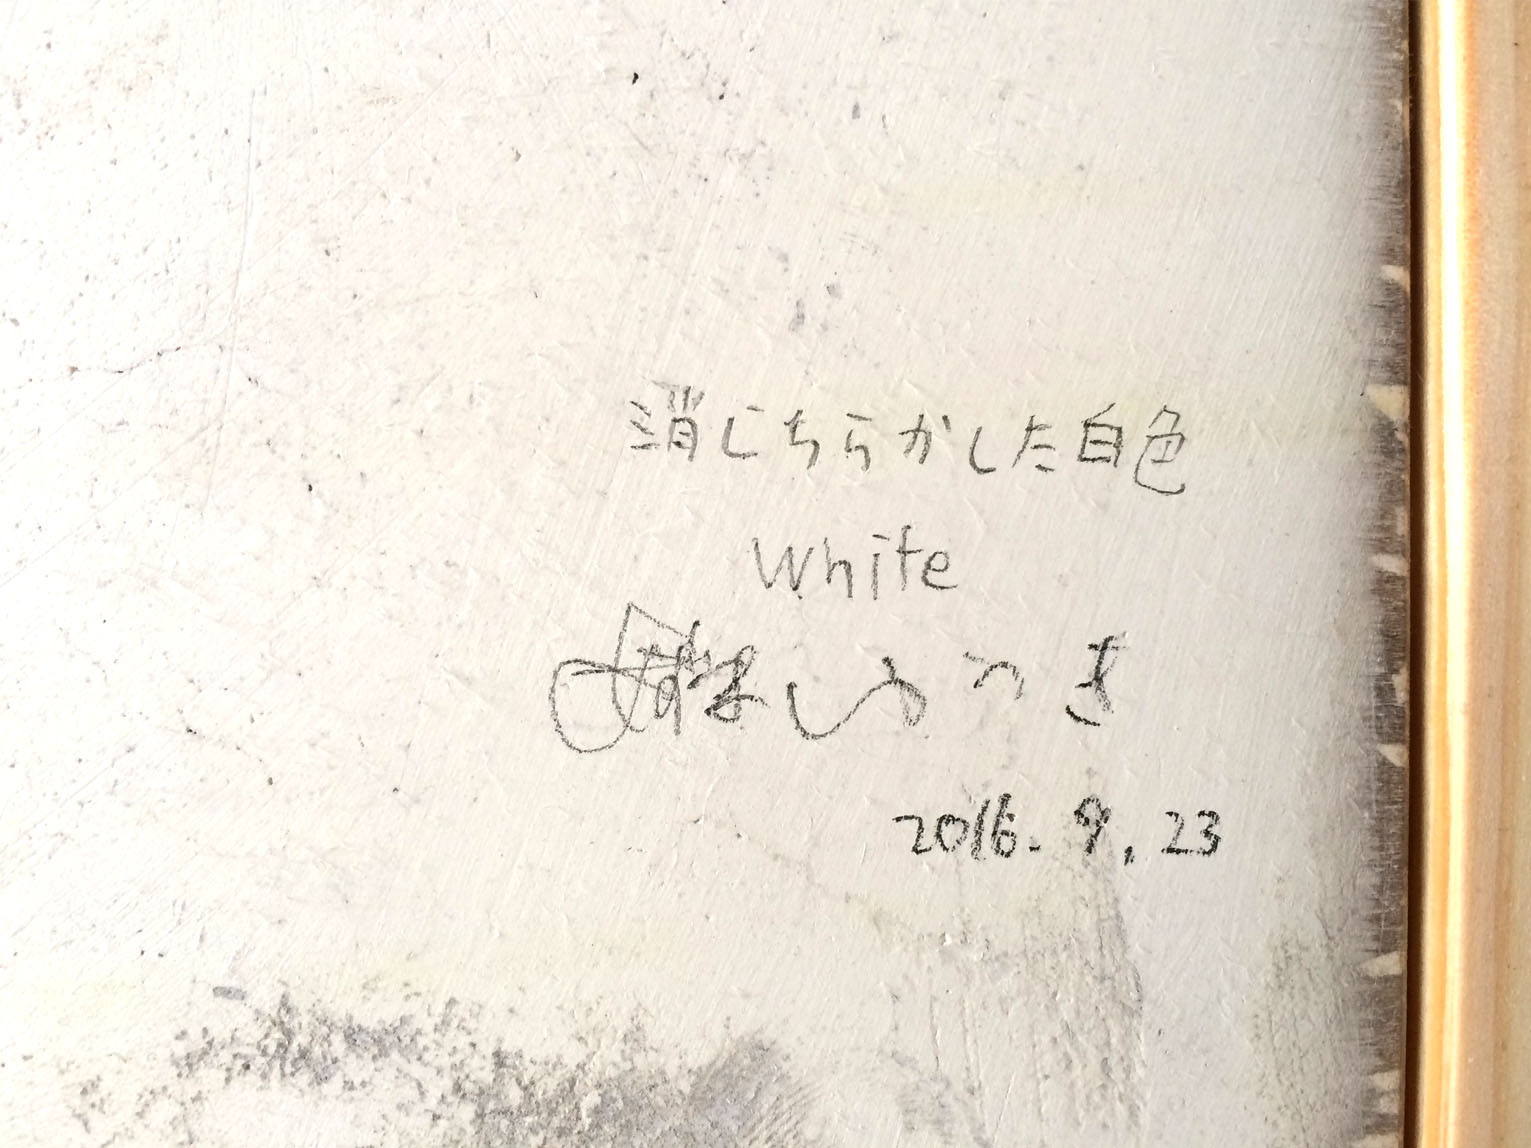 消しちらかした白色
White
2016. 9. 23